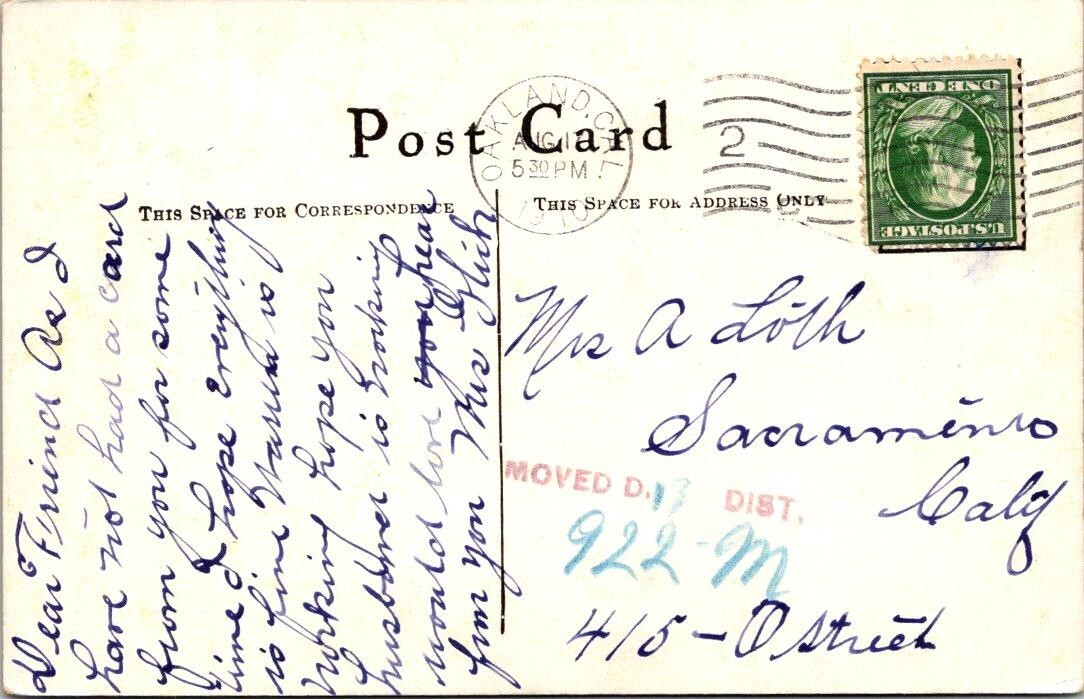 Post Card
THIS SPACE FOR CORRESPONDENCE
THIS SPACE FOR ADDRESS ONLY
OAKLAND, CAL.
AUG 17
5 30 PM
1910
2
ONE CENT
U.S. POSTAGE
Dear Friend As I
have not had a card
from you for some
time I hope Everything
is fine is
working hope you
husbaned is working
would love hear
frm you Mrs
Mrs A Loth
Sacramento
Calif
MOVED D. 13 DIST.
922-M
415 - O Street